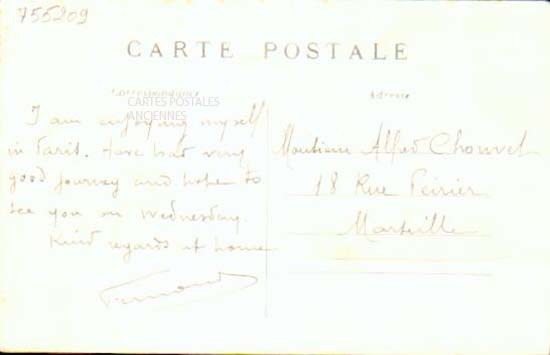 755209
CARTE POSTALE
Correspondance
Adresse
CARTES POSTALES
ANCIENNES
I am enjoying myself
in Paris. Have had very
good journey and hope to
see you on Wednesday.
Kind regards at home
Fernand
Monsieur Alfred Chouvet
18 Rue Périer
Marseille